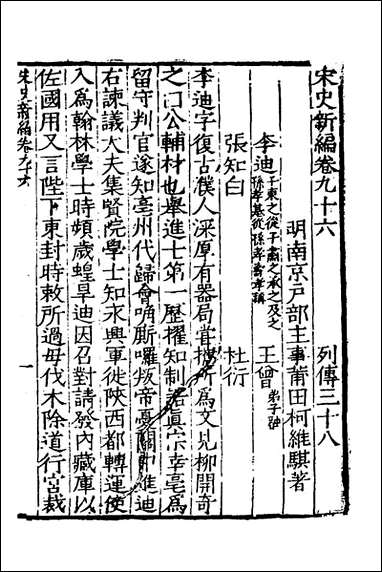 宋史新編卷九十六　列傳三十八
明南京戶部主事莆田柯維騏著
李迪 子東之從子肅之承之及之 孫孝基從孫孝壽孝稱　王曾 弟子融
張知白　杜衍
李迪字復古濮人深厚有器局嘗攜所為文見柳開奇
之曰公輔材也舉進士第一歷擢知制誥真宗幸亳為
留守判官遂知亳州代歸會唃厮囉叛帝憂關中進迪
右諫議大夫集賢院學士知永興軍徙陝西都轉運使
入為翰林學士時頻歲蝗旱迪因召對請發內藏庫以
佐國用又言陛下東封時敕所過毋伐木除道行宮裁
宋史新編卷九十六　一